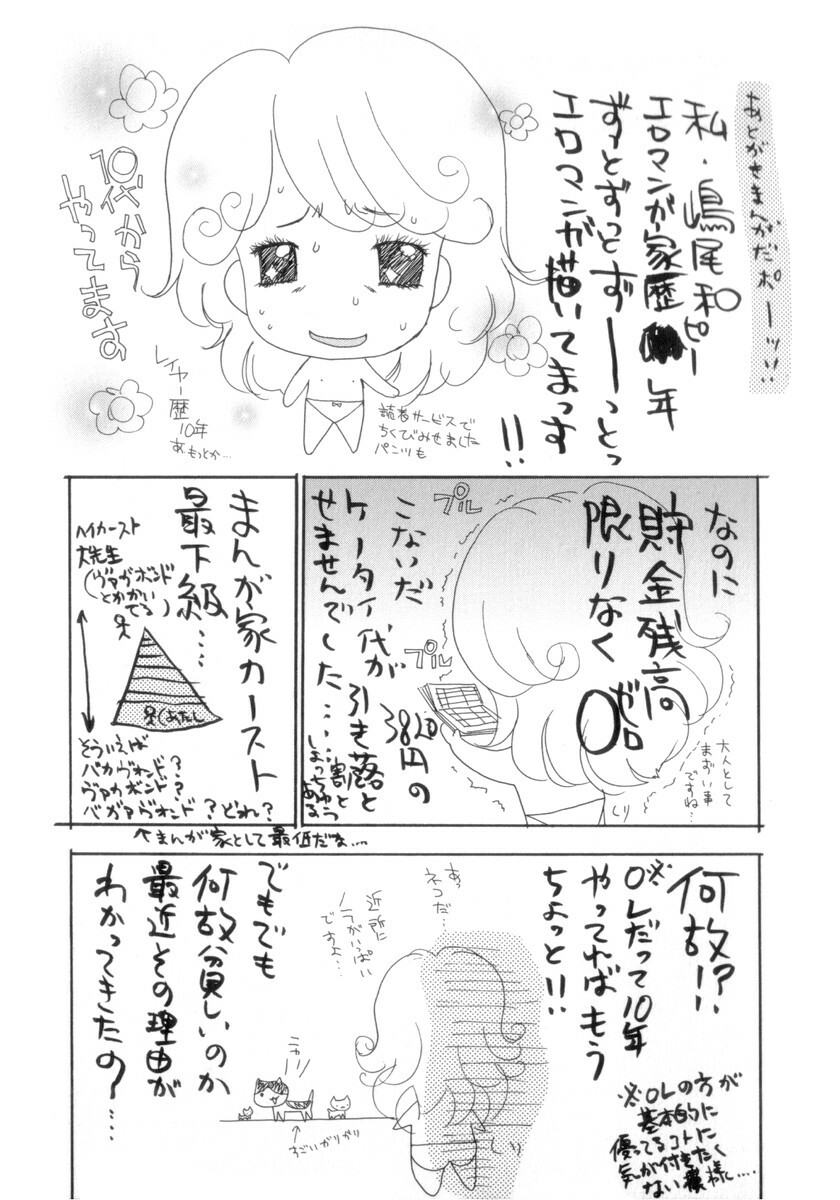 あとがきまんがだポーッ!!
私・嶋尾和ピー
エロマンガ家歴
年
ずっとずっとずーーっとっ
エロマンガ描いてまっす
!!
10代から
やってます
レイヤー歴
10年
あ、もっとか…
読者サービスで
ちくびみせました
パンツも
なのに
貯金残高
限りなく
0
ゼロ
プル
プル
こないだ
3820円の
ケータイ代が引き落と
せませんでした……
割と
しょっちゅう
ある
大人として
まずい事
ですね…
しり
まんが家カースト
最下級……
ハイカースト
大先生
(ヴァガボンド
とかかい
てる)
あたし
そういえば
バカヴォンド?
ヴァガボンド?
バガァヴォンド?どれ?
↑まんが家として最低だな…
何故!?
※OLだって10年
やってればもう
ちょっと!!
※OLの方が
基本的に
優ってるコトに
気が付きたく
ない模様…
あっ
ネコだ…
近所に
ノラがいっぱい
ですよ…
ニャー
すごいがりがり
しり
でもでも
何故貧しいのか
最近その理由が
わかってきたの?……